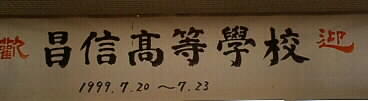 歡 昌信高等學校 迎
1999.7.20 ~7.23